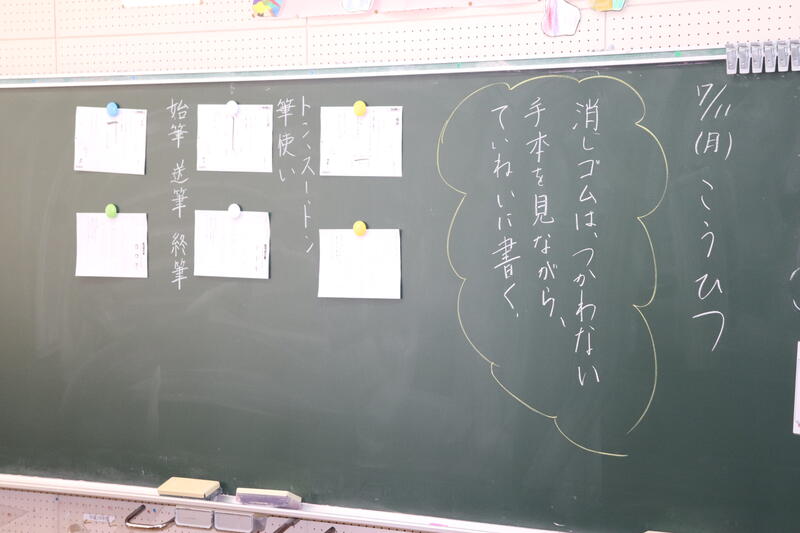 7/11(月) こうひつ
消しゴムは、つかわない
手本を見ながら、
ていねいに書く。
トン、スー、トン
筆使い
始筆 送筆 終筆